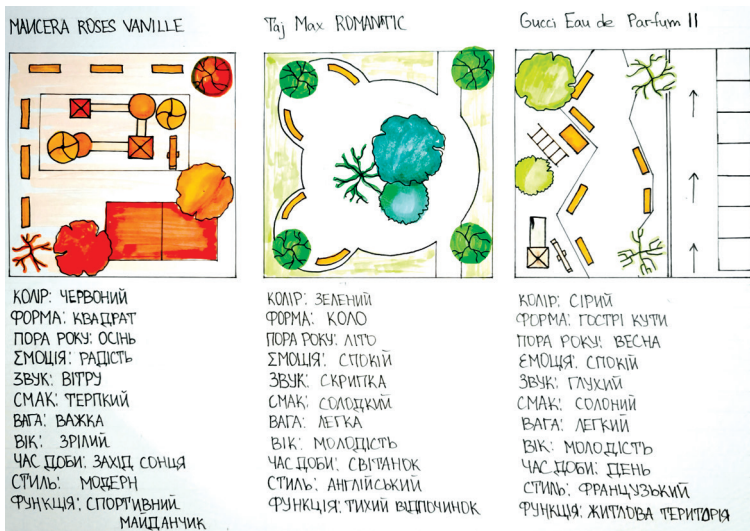 MANCERA ROSES VANILLE
КОЛІР: ЧЕРВОНИЙ
ФОРМА: КВАДРАТ
ПОРА РОКУ: ОСІНЬ
ЕМОЦІЯ: РАДІСТЬ
ЗВУК: ВІТРУ
СМАК: ТЕРПКИЙ
ВАГА: ВАЖКА
ВІК: ЗРІЛИЙ
ЧАС ДОБИ: ЗАХІД СОНЦЯ
СТИЛЬ: МОДЕРН
ФУНКЦІЯ: СПОРТИВНИЙ
МАЙДАНЧИК
Taj Max ROMANTIC
КОЛІР: ЗЕЛЕНИЙ
ФОРМА: КОЛО
ПОРА РОКУ: ЛІТО
ЕМОЦІЯ: СПОКІЙ
ЗВУК: СКРИПКА
СМАК: СОЛОДКИЙ
ВАГА: ЛЕГКА
ВІК: МОЛОДІСТЬ
ЧАС ДОБИ: СВІТАНОК
СТИЛЬ: АНГЛІЙСЬКИЙ
ФУНКЦІЯ: ТИХИЙ ВІДПОЧИНОК
Gucci Eau de Parfum II
КОЛІР: СІРИЙ
ФОРМА: ГОСТРІ КУТИ
ПОРА РОКУ: ВЕСНА
ЕМОЦІЯ: СПОКІЙ
ЗВУК: ГЛУХИЙ
СМАК: СОЛОНИЙ
ВАГА: ЛЕГКИЙ
ВІК: МОЛОДІСТЬ
ЧАС ДОБИ: ДЕНЬ
СТИЛЬ: ФРАНЦУЗЬКИЙ
ФУНКЦІЯ: ЖИТЛОВА ТЕРИТОРІЯ